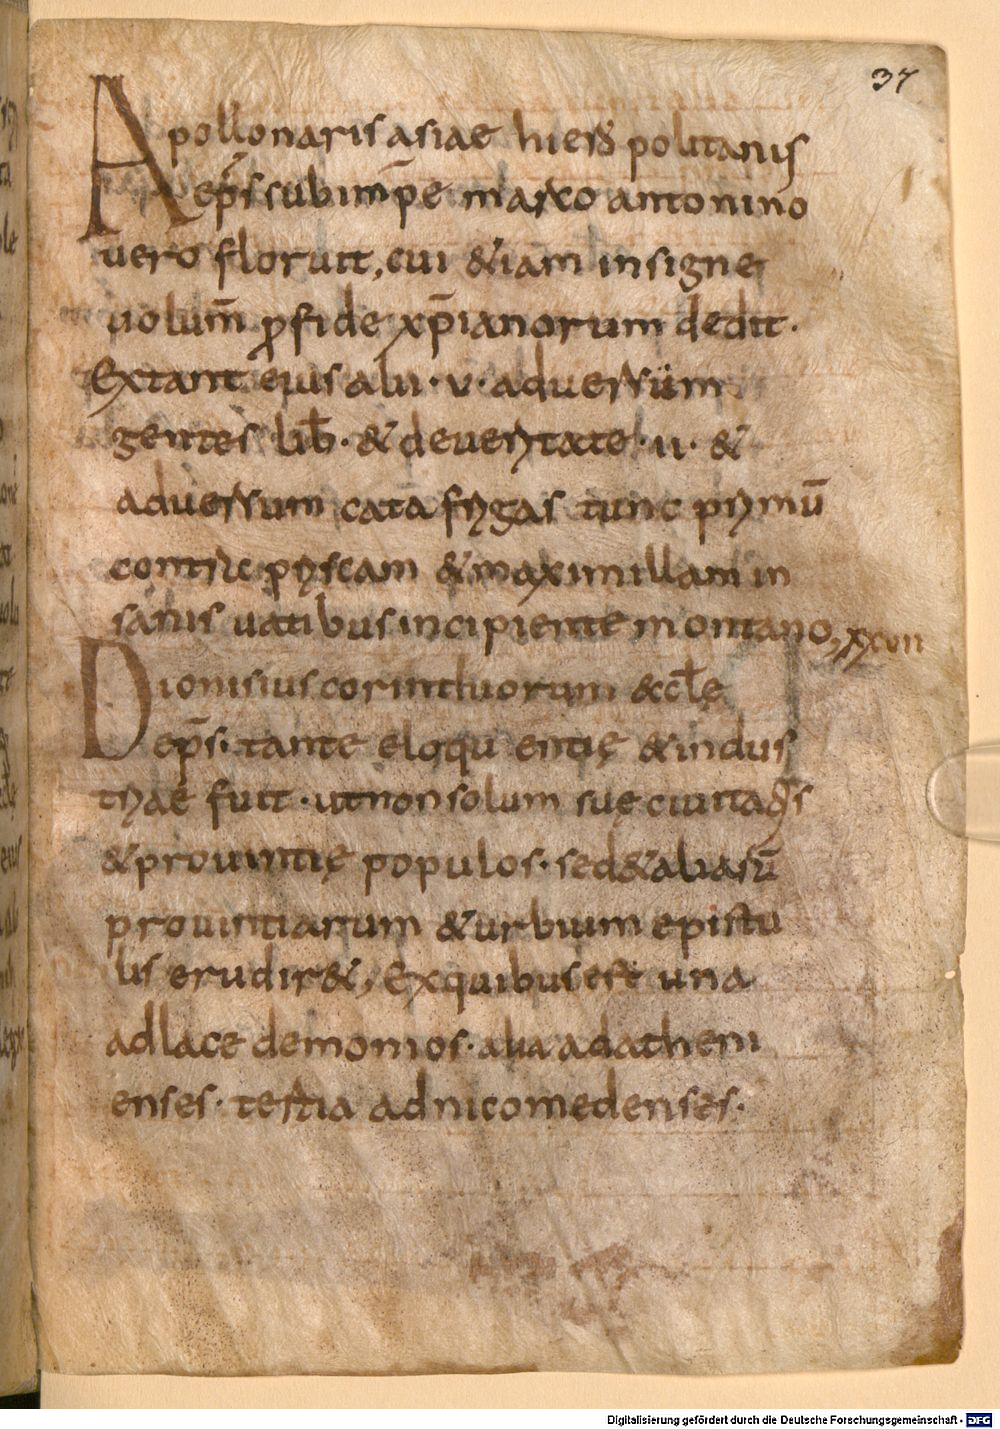 37
Apollonaris asiae hierꝍ politanis
ep̄s sub imp̄e marco antonino
uero floruit, cui &iam insigne
uolum̄ ꝓfide xp̄ianorum dedit·
Extant eius alii·v·aduersum
gentes lib̄·& deueritate·ii·&
aduersum cata frygas tunc primū
contra priscam & maximillam in
sanis uatibus incipiente montano, xxvii
Dionisius corinthiorum &cl̄ę
ep̄s·tante eloquentię & indus
triae fuit·ut non solum suę ciuitatis
& prouintię populos·sed & aliarū
prouintiarum & urbium epistu
lis erudir&, Ex quibus est una
ad lace demonios·alia ad atheni
enses·tertia ad nicomedenses·
Digitalisierung gefördert durch die Deutsche Forschungsgemeinschaft - DFG